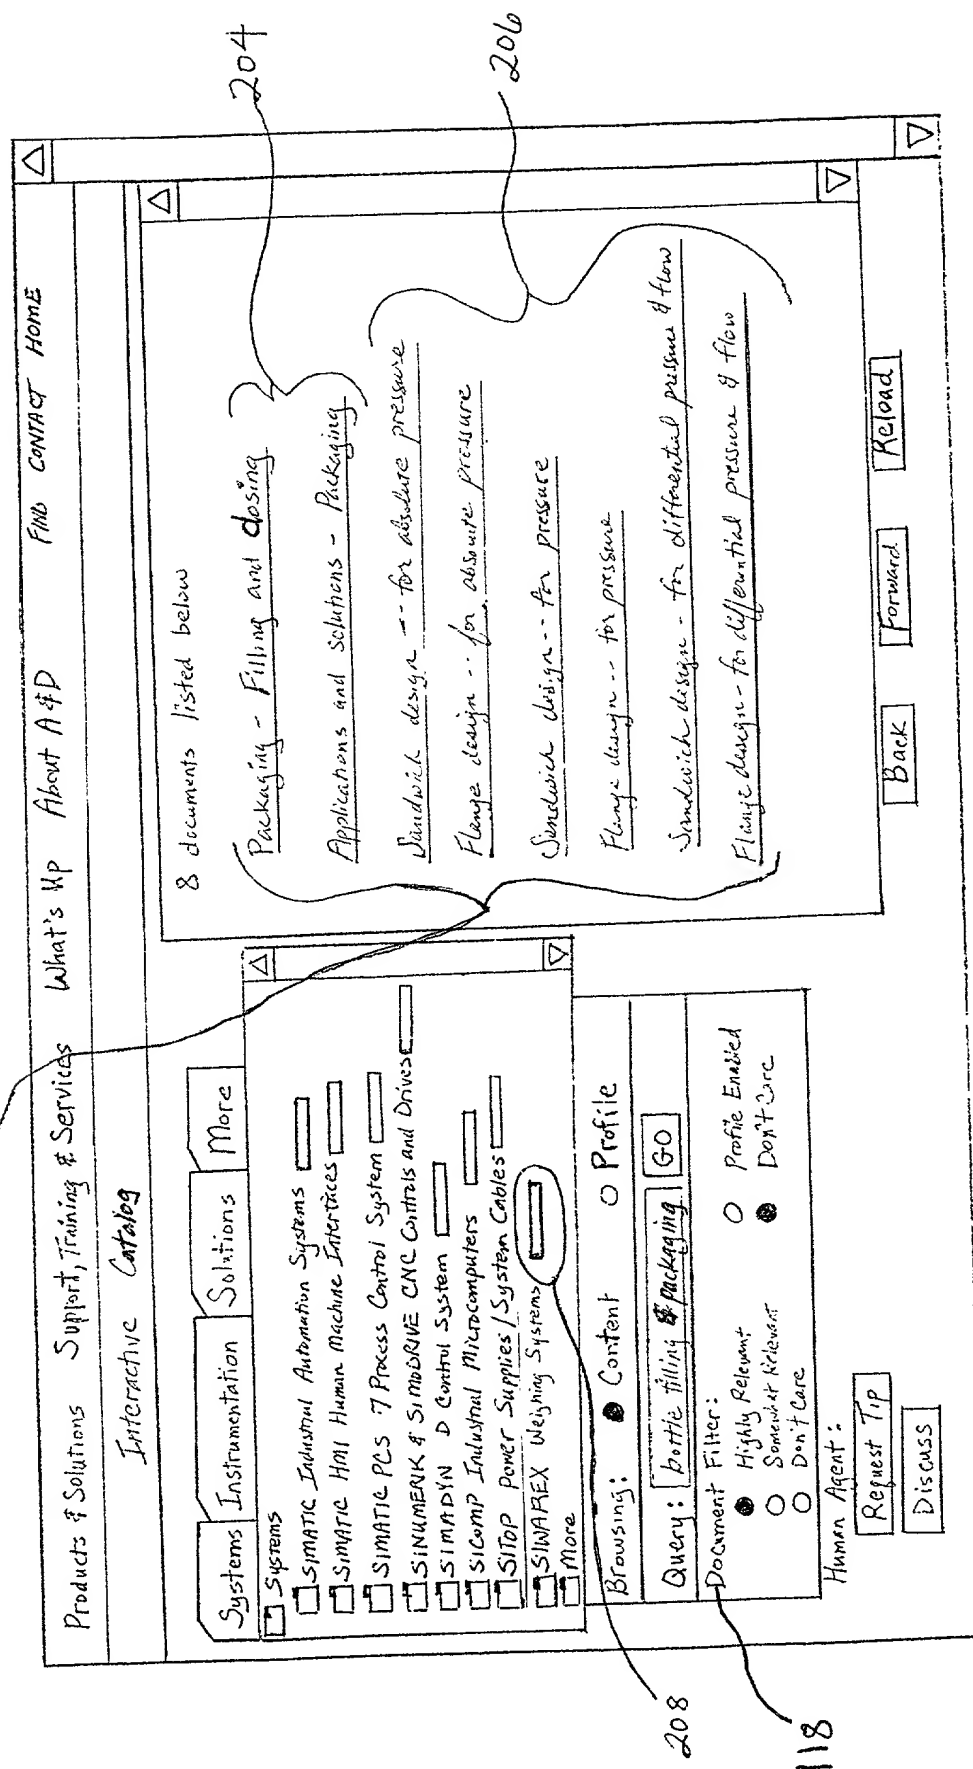 Products & Solutions Support, Training & Services What's Up About A&D FIND CONTACT HOME
Interactive Catalog
Systems Instrumentation Solutions More
Systems
SIMATIC Industrial Automation Systems
SIMATIC HMI Human Machine Interfaces
SIMATIC PCS 7 Process Control System
SINUMERIK & SIMODRIVE CNC Controls and Drives
SIMADYN D Control System
SICOMP Industrial Microcomputers
SITOP Power Supplies/System Cables
SIWAREX Weighing Systems
More
Browsing: Content Profile
Query: bottle filling & packaging GO
Document Filter:
Highly Relevant Profile Enabled
Somewhat Relevant Don't Care
Don't Care
Human Agent:
Request Tip
Discuss
8 documents listed below
Packaging - Filling and dosing
Applications and Solutions - Packaging
Sandwich design -- for absolute pressure
Flange design -- for absolute pressure
Sandwich design -- for pressure
Flange design -- for pressure
Sandwich design - for differential pressure & flow
Flange design - for differential pressure & flow
Back Forward Reload
204
206
208
118